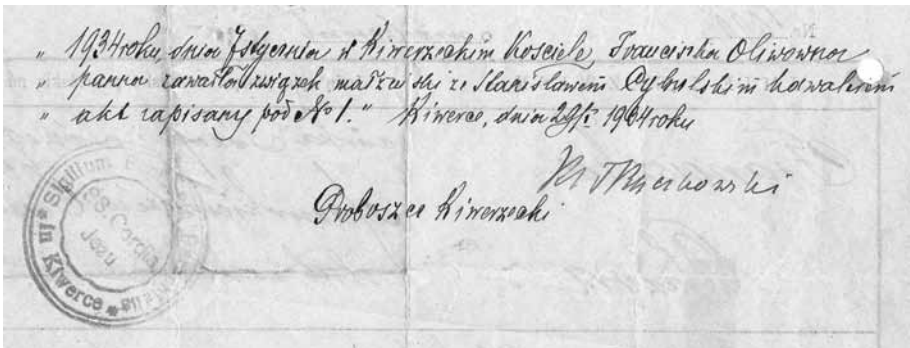 „ 1934 roku, dnia 7 stycznia w Kiwerzeckim Kościele, Franciszka Oliwówna
„ panna zawarła związek małżeński ze Stanisławem Cybulskim kawalerem
„ akt zapisany pod № 1." Kiwerce, dnia 29/I 1934 roku
Proboszcz Kiwerzecki
Sigillum
SS. Cordis
Jezu
Kiwerce